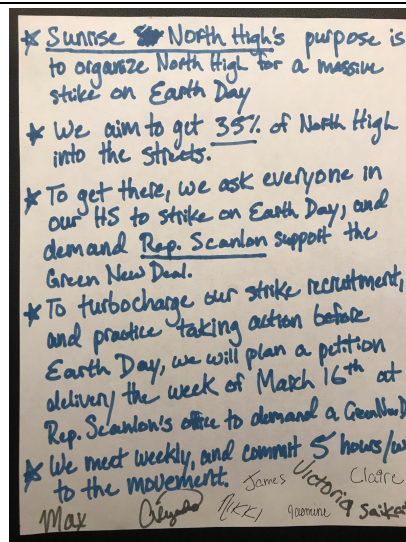 ★ Sunrise North High's purpose is
to organize North High for a massive
strike on Earth Day
★ We aim to get 35% of North High
into the streets.
★ To get there, we ask everyone in
our HS to strike on Earth Day, and
demand Rep. Scanlon support the
Green New Deal.
★ To turbocharge our strike recruitment,
and practice taking action before
Earth Day, we will plan a petition
delivery the week of March 16th at
Rep. Scanlon's office to demand a Green New D
★ We meet weekly, and commit 5 hours/w
to the movement.
James Victoria Claire
Max Nikki Jasmine